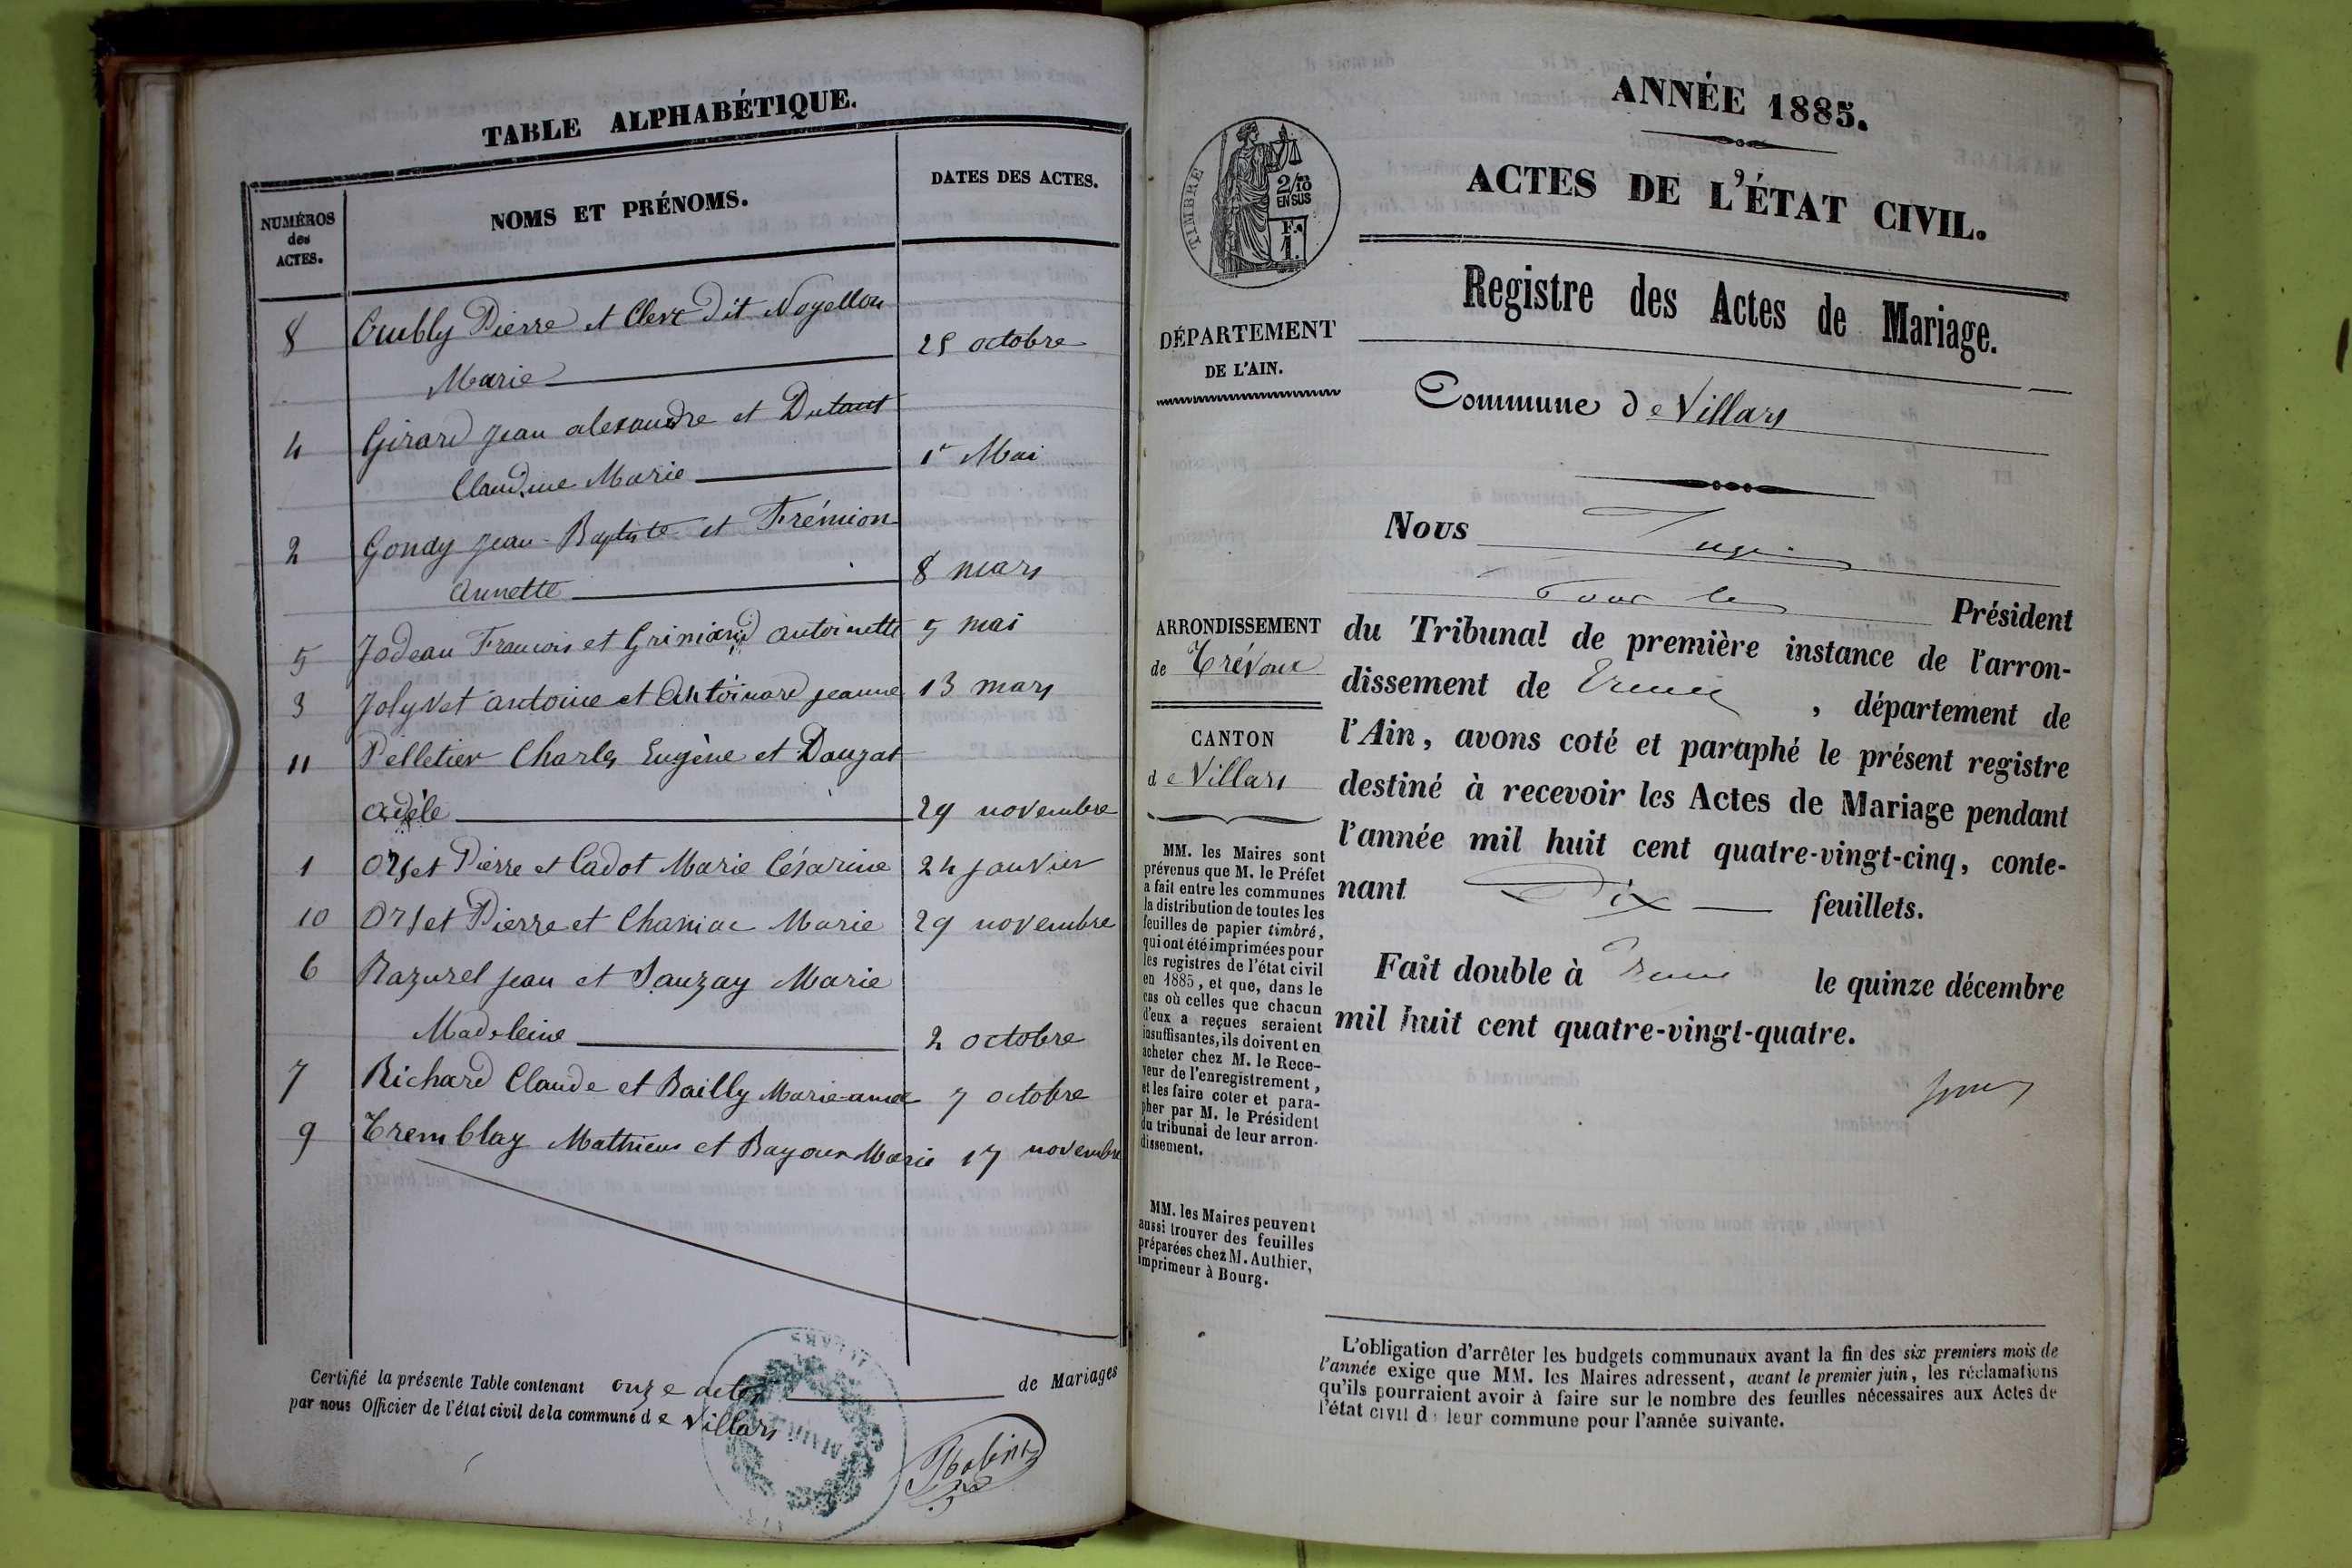 TABLE ALPHABÉTIQUE.
NUMÉROS
des
ACTES.
NOMS ET PRÉNOMS.
DATES DES ACTES.
8 Pierre et Clerc Dit Noyellon
Marie 25 octobre
4 Girard Jean alexandre et Dutant
Claudine Marie 1er Mai
2 Gondy Jean-Baptiste et Frémion
annette 8 mars
5 Jodeau François et antoinette 5 mai
3 Jolyvet antoine et antoinard jeanne 13 mars
11 Pelletier Charles Eugène et Dauzat
adèle 29 novembre
1 Orset Pierre et Cadot Marie Césarine 24 janvier
10 Orset Pierre et Chaniac Marie 29 novembre
6 Razurel Jean et Sauzay Marie
Madeleine 2 octobre
7 Richard Claude et Bailly Marie 7 octobre
9 Tremblay Mathieu et Marie 17 novembre
Certifié la présente Table contenant onze actes de Mariages
par nous Officier de l'état civil de la commune de Villars
ANNÉE 1885.
ACTES DE L'ÉTAT CIVIL.
TIMBRE
2/10
EN SUS
1.
Registre des Actes de Mariage.
DÉPARTEMENT
DE L'AIN.
Commune de Villars
Nous Juge
Pour le Président
du Tribunal de première instance de l'arron-
dissement de , département de
l'Ain, avons coté et paraphé le présent registre
destiné à recevoir les Actes de Mariage pendant
l'année mil huit cent quatre-vingt-cinq, conte-
nant Dix feuillets.
Fait double à le quinze décembre
mil huit cent quatre-vingt-quatre.
ARRONDISSEMENT
de Trévoux
CANTON
de Villars
MM. les Maires sont
prévenus que M. le Préfet
a fait entre les communes
la distribution de toutes les
feuilles de papier timbré,
qui ont été imprimées pour
les registres de l'état civil
en 1885, et que, dans le
cas où celles que chacun
d'eux a reçues seraient
insuffisantes, ils doivent en
acheter chez M. le Rece-
veur de l'enregistrement,
et les faire coter et para-
pher par M. le Président
du tribunal de leur arron-
dissement.
MM. les Maires peuvent
aussi trouver des feuilles
préparées chez M. Authier,
imprimeur à Bourg.
L'obligation d'arrêter les budgets communaux avant la fin des six premiers mois de
l'année exige que MM. les Maires adressent, avant le premier juin, les réclamations
qu'ils pourraient avoir à faire sur le nombre des feuilles nécessaires aux Actes de
l'état civil de leur commune pour l'année suivante.